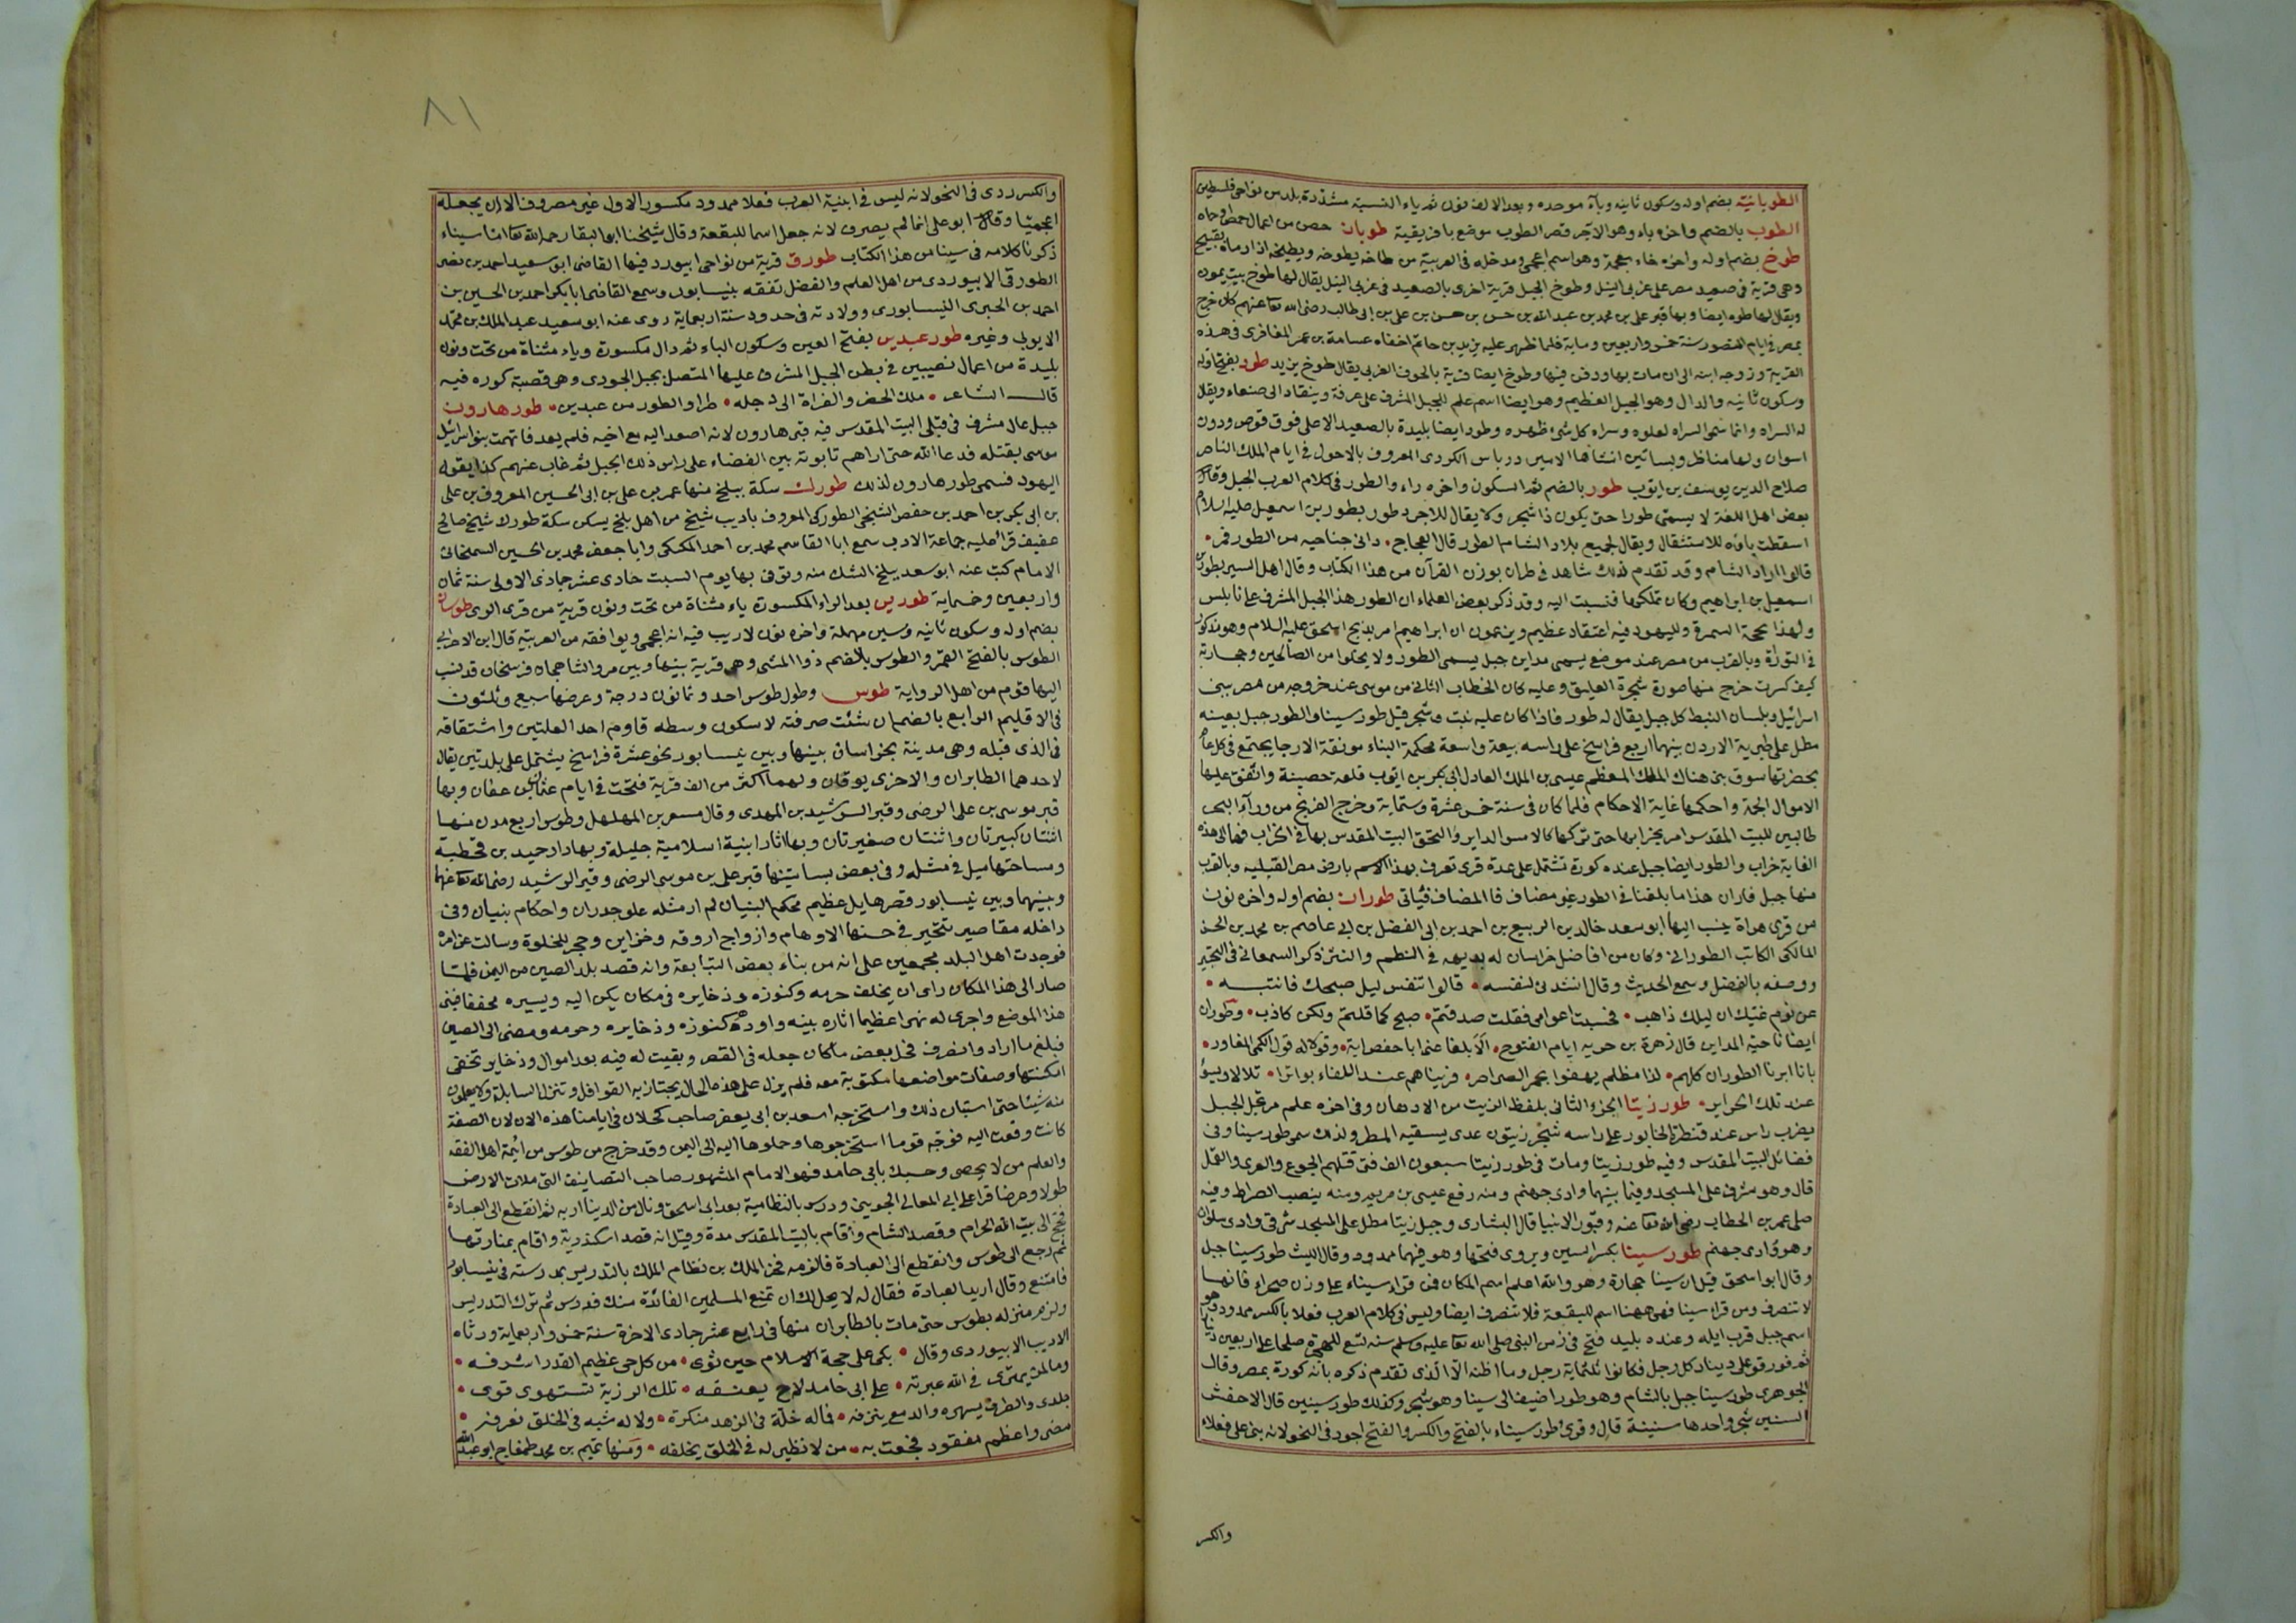 الطوبانية بضم اوله وسكون ثانيه وبآء موحده وبعد الالف نون ثم ياء النسبة مشددة بلد من نواحي فلسطين
الطوب بالضم واخره باء وهو الآجر قصر الطوب موضع بافريقية طوبان حصن من اعمال حمص او حماه
طوخ بضم اوله واخره خاء معجمة وهو اسم اعجمي ومدخله في العربية من طاخه يطوخه ويطيخه اذا رماه بقبيح
وهي قرية في صعيد مصر على غربي النيل وطوخ الجبل قرية اخرى بالصعيد في غربي النيل يقال لها طوخ بيت يمون
ويقال لها طوه ايضا وبها قبر علي بن محمد بن عبد الله بن حسن بن حسن بن علي بن ابي طالب رضي الله تعا عنهم كان خرج
بمصر في ايام المنصور سنة خمس واربعين وماية فلما ظهر عليه يزيد بن حاتم اخفاه عسامة بن عمر المغافري في هذه
القرية وزوجه ابنته الى ان مات بها ودفن فيها وطوخ ايضا قرية بالحوف الغربي يقال طوخ يزيد طود بفتح اوله
وسكون ثانيه والدال وهو الجبل العظيم وهو ايضا اسم علم للجبل المشرف على عرفة وينقاد الى صنعاء ويقال
له السراه وانما سمى السراه لعلوه وسراه كل شئ ظهره وطود ايضا بليدة بالصعيد الاعلى فوق قوص ودون
اسوان ولها مناظر وبساتين انشأها الامير درباس الكردي المعروف بالاحول في ايام الملك الناصر
صلاح الدين يوسف بن ايوب طور بالضم ثم السكون واخره راء والطور في كلام العرب الجبل وقال
بعض اهل اللغة لا يسمى طورا حتى يكون ذا شجر ولا يقال للاجرد طور بطور بن اسمعيل عليه السلام
اسقطت باؤه للاستثقال ويقال لجميع بلاد الشام الطور قال العجاج • دانى جناحيه من الطور فمر •
قالوا اراد الشام وقد تقدم لذلك شاهد في طران بوزن القرآن من هذا الكتاب وقال اهل السير بطور بن
اسمعيل بن ابراهيم وكان تملكها فنسبت اليه وقد ذكر بعض العلماء ان الطور هذا الجبل المشرف على نابلس
ولهذا يحجه السمرة ولليهود فيه اعتقاد عظيم ويزعمون ان ابراهيم امر بذبح اسحق عليه السلام وهو مذكور
في التوراة وبالقرب من مصر عند موضع يسمى مدين جبل يسمى الطور ولا يخلوا من الصالحين وحجارته
كيف كسرت خرج منها صورة شجرة العليق وعليه كان الخطاب الثاني من موسى عند خروجه من مصر ببني
اسرائيل وبلسان النبط كل جبل يقال له طور فاذا كان عليه نبت وشجر قيل طور سينا والطور جبل بعينه
مطل على طبرية الاردن بينهما اربع فراسخ على راسه بيعة واسعة محكمة البناء مونقة الارجا يجتمع في كل عام
بحضرتها سوق بنى هناك الملك المعظم عيسى بن الملك العادل ابي بكر بن ايوب قلعة حصينة وانفق عليها
الاموال الجمة واحكمها غاية الاحكام فلما كان في سنة خمس عشرة وستماية وخرج الفرنج من ورآء البحر
طالبين للبيت المقدس امر بخرابها حتى تركها كالامس الدابر والتحق البيت المقدس بها في الخراب فهما الى هذه
الغاية خراب والطور ايضا جبل عنده كورة تشتمل على عدة قرى تعرف بهذا الاسم بارض مصر القبليه وبالقرب
منها جبل فاران هذا ما بلغنا في الطور غير مضاف فا المضاف فيأتي طوران بضم اوله واخره نون
من قرى هراة ينسب اليها ابو سعد خالد بن الربيع بن احمد بن ابي الفضل بن ابي عاصم بن محمد بن الحسن
المالكي الكاتب الطوراني وكان من افاضل خراسان له بديهه في النظم والنثر ذكره السمعاني في التحبير
ووصفه بالفضل وسمع الحديث وقال انشدني لنفسه • قالوا تنفس ليل صبحك فانتبه •
عن نوم غيك ان ليلك ذاهب • فحسبت اعوامي فقلت صدقتم • صبح كما قلتم ولكن كاذب • وطوران
ايضا ناحية المداين قال زهرة بن حويه ايام الفتوح • ألا بلغا عني ابا حفص اية • وقولا له قول الكمي المغاور •
بانا ابرنا الطوران كلهم • لذا مظلم يهفوا بحمر الصراصر • فزيناهم عند اللقاء بواترا • تلالا ويسؤ
عند تلك الحراير • طور زيتا الجزء الثاني بلفظ الزيت من الادهان وفي اخره علم مرتجل لجبل
بقرب راس عند قنطرة الخابور على راسه شجر زيتون عدى يسقيه المطر ولذلك سمى طور سينا وفي
فضائل البيت المقدس وفيه طور زيتا ومات في طور زيتا سبعون الف نبي قتلهم الجوع والعرى والقمل
قال وهو مشرف على المسجد وفيما بينهما وادي جهنم ومنه رفع عيسى بن مريم ومنه ينصب الصراط وفيه
صلى عمر بن الخطاب رضي الله تعا عنه وقبور الانبيا قال البشاري وجبل زيتا مطل على المسجد شرقي وادي سلوان
وهو وادي جهنم طور سينا بكسر السين ويروى فتحها وهو فيهما ممدود وقال الليث طور سينا جبل
وقال ابو اسحق قيل ان سينا حجارة وهو والله اعلم اسم المكان فمن قرا سيناء على وزن صحراء فانها
لا تنصرف ومن قرا سينا فهي ههنا اسم للبقعة فلا تنصرف ايضا وليس في كلام العرب فعلا بالكسر ممدود وهو
اسم جبل قرب ايله وعنده بليد فتح في زمن النبي صلى الله تعا عليه وسلم سنه تسع للهجرة صلحا على اربعين دينارا
ثم فورقو على دينار كل رجل فكانوا ثلثماية رجل وما اظنه الا الذي تقدم ذكره بانه كورة بمصر وقال
الجوهري طور سينا جبل بالشام وهو طور اضيف الى سينا وهو شجر وكذلك طور سينين قال الاخفش
السنين شجر واحدها سنينة قال وقرئ طور سيناء بالفتح والكسر والفتح اجود في النحو لانه بنى على فعلاء
والكسر
٨١
والكسر ردى في النحو لانه ليس في ابنية العرب فعلا ممدود مكسور الاول غير مصروف الا ان يجعله
اعجميا وقال ابو علي انما لم يصرف لانه جعل اسما للبقعة وقال شيخنا ابو البقا رحمه الله تعا اما سيناء
ذكرنا كلامه في سينا من هذا الكتاب طورق قرية من نواحي ابيورد فيها القاضي ابو سعيد احمد بن نصر
الطورقي الابيوردي من اهل العلم والفضل تفقه بنيسابور وسمع القاضي ابا بكر احمد بن الحسين بن
احمد بن الحيري النيسابوري وولادته في حدود سنة اربعماية روى عنه ابو سعيد عبد الملك بن محمد
الايوبي وغيره طور عبدين بفتح العين وسكون الباء ثم دال مكسورة وياء مثناة من تحت ونون
بليدة من اعمال نصيبين في بطن الجبل المشرف عليها المتصل بجبل الجودي وهي قصبة كوره فيه
قال الشاعر • ملك الحضر والفراة الى دجله • طرا والطور من عبدين • طور هارون
جبل عال مشرف في قبلي البيت المقدس فيه قبر هارون لانه اصعد اليه مع اخيه فلم يعد فاتهمت بنو اسرائيل
موسى بقتله فدعا الله حتى اراهم تابوته بين الفضاء على راس ذلك الجبل ثم غاب عنهم كذا يقوله
اليهود فسمى طور هارون لذلك طورك سكة ببلخ منها عمر بن علي بن ابي الحسين المعروف بن علي
بن ابي بكر بن احمد بن حفص الشيخي الطوركي المعروف باديب شيخ من اهل بلخ يسكن سكة طورك شيخ صالح
عفيف قرا عليه جماعة الادب سمع ابا القاسم محمد بن احمد المكيكي وابا جعفر محمد بن الحسين السمنجاني
الامام كتب عنه ابو سعد ببلخ الشك منه وتوفي بها يوم السبت حادي عشر جمادى الاولى سنة ثمان
واربعين وخمساية طورين بعد الراء المكسورة ياء مثناة من تحت ونون قرية من قرى الرى طوسان
بضم اوله وسكون ثانيه وسين مهملة واخره نون لا ريب فيه انه اعجمي ويوافقه من العربية قال ابن الاعرابي
الطوس بالفتح القمر والطوس بالضم ذوا المشى وهي قرية بينها وبين مرو الشاهجان فرسخان قد نسب
اليها قوم من اهل الرواية طوس وطول طوس احد وثمانون درجة وعرضها سبع وثلثون
في الاقليم الرابع بالضم ان شئت صرفته لا سكون وسطه قاوم احد العلتين واشتقاقه
في الذي قبله وهي مدينة بخراسان بينها وبين نيسابور نحو عشرة فراسخ يشتمل على بلدتين يقال
لاحدهما الطابران والاخرى يوقان ولهما اكثر من الف قرية فتحت في ايام عثمان بن عفان وبها
قبر موسى بن علي الرضى وقبر الرشيد بن المهدي وقال مسعر بن المهلهل وطوس اربع مدن منها
اثنتان كبيرتان واثنتان صغيرتان وبها اثار ابنية اسلامية جليلة وبها دار حميد بن قحطبة
ومساحتها ميل في مثله وفي بعض بساتينها قبر علي بن موسى الرضى وقبر الرشيد رضى الله تعا عنهما
وبينهما وبين نيسابور قصر هايل عظيم محكم البنيان لم ار مثله علو جدران واحكام بنيان وفي
داخله مقاصير تتحير في حسنها الاوهام وازواج اروقه وخزاين وحجر للخلوة وسالت عن امره
فوجدت اهل البلد مجمعين على انه من بناء بعض التبابعة وانه قصد بلد الصين من اليمن فلما
صار الى هذا المكان راى ان يخلف حرمه وكنوزه وذخايره في مكان يكن اليه ويسيره مخففا فبنى
هذا الموضع واجرى له نهرا عظيما اثاره بينه واودعه كنوزه وذخايره وحرمه ومضى الى الصين
فبلغ ما اراد وانصرف فحمل بعض ما كان جعله في القصر وبقيت له فيه بعد اموال وذخاير تخفى
امكنتها وصفات مواضعها مكتوبة معه فلم يزل على هذه الحال يجتاز به القوافل وتنزله السابلة ولا يعلمون
منه شيئا حتى استبان ذلك واستخرجه اسعد بن ابي يعفر صاحب كحلان في ايامنا هذه الان لان الصفة
كانت وقعت اليه فوجه قوما استخرجوها وحملوها اليه الى اليمن وقد خرج من طوس من ائمة اهل الفقه
والعلم من لا يحصى وحسبك بابي حامد فهو الامام المشهور صاحب التصانيف التي ملات الارض
طولا وعرضا قرا على ابي المعالي الجويني ودرس بالنظامية بعد ابي اسحق ونال من الدنيا اربه ثم انقطع الى العبادة
فحج الى بيت الله الحرام وقصد الشام واقام بالبيت المقدس مدة وقيل انه قصد اسكندرية واقام بمنارتها
ثم رجع الى طوس وانقطع الى العبادة فالزمه فخر الملك بن نظام الملك بالتدريس بمدرسته في نيسابور
فامتنع وقال اريد العبادة فقال له لا يحل لك ان تمنع المسلمين الفائدة منك فدرس ثم ترك التدريس
ولزم منزله بطوس حتى مات بالطابران منها في رابع عشر جمادى الاخرة سنة خمس واربعماية ورثاه
الاديب الابيوردي وقال • بكى على حجة الاسلام حين ثوى • من كل حي عظيم القدر اشرفه •
وما لمن يمترى في الله عبرته • على ابي حامد لاح يعنفه • تلك الرزية تستهوى قوى •
جلدى والطرف يسهره والدمع ينزفه • فما له خلة في الزهد منكرة • ولا له شبه في الخلق نعرفه •
مضى واعظم مفقود فجعت به • من لا نظير له في الخلق يخلفه • ومنها تميم بن محمد طمغاج ابو عبد الله